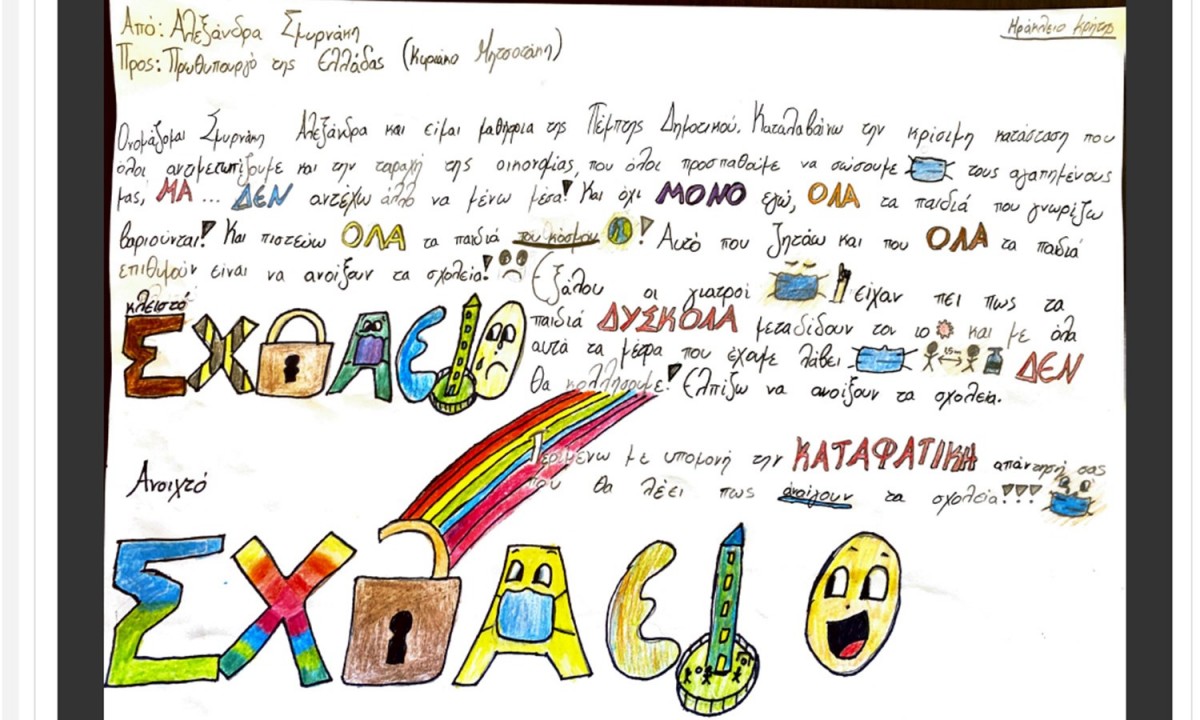 Από: Αλεξάνδρα Σμυρνάκη
Ηράκλειο Κρήτης
Προς: Πρωθυπουργό της Ελλάδας (Κυριάκο Μητσοτάκη)
Ονομάζομαι Σμυρνάκη Αλεξάνδρα και είμαι μαθήτρια της Πέμπτης Δημοτικού. Καταλαβαίνω την κρίσιμη κατάσταση που
όλοι αντιμετωπίζουμε και την ταραχή της οικονομίας, που όλοι προσπαθούμε να σώσουμε τους αγαπημένους
μας, ΜΑ ... ΔΕΝ αντέχω άλλο να μένω μέσα! Και όχι ΜΟΝΟ εγώ, ΟΛΑ τα παιδιά που γνωρίζω
βαριούνται! Και πιστεύω ΟΛΑ τα παιδιά του κόσμου! Αυτό που ζητάω και που ΟΛΑ τα παιδιά
επιθυμούν είναι να ανοίξουν τα σχολεία! Εξάλου οι γιατροί είχαν πει πως τα
παιδιά ΔΥΣΚΟΛΑ μεταδίδουν τον ιο και με όλα
αυτά τα μέτρα που έχουμε λάβει ΔΕΝ
θα κολλήσουμε! Ελπίζω να ανοίξουν τα σχολεία.
κλειστό
ΣΧΟΛΕΙΟ
Περιμένω με υπομονή την ΚΑΤΑΦΑΤΙΚΗ απάντησή σας
που θα λέει πως ανοίγουν τα σχολεία!!!
Ανοιχτό
ΣΧΟΛΕΙΟ